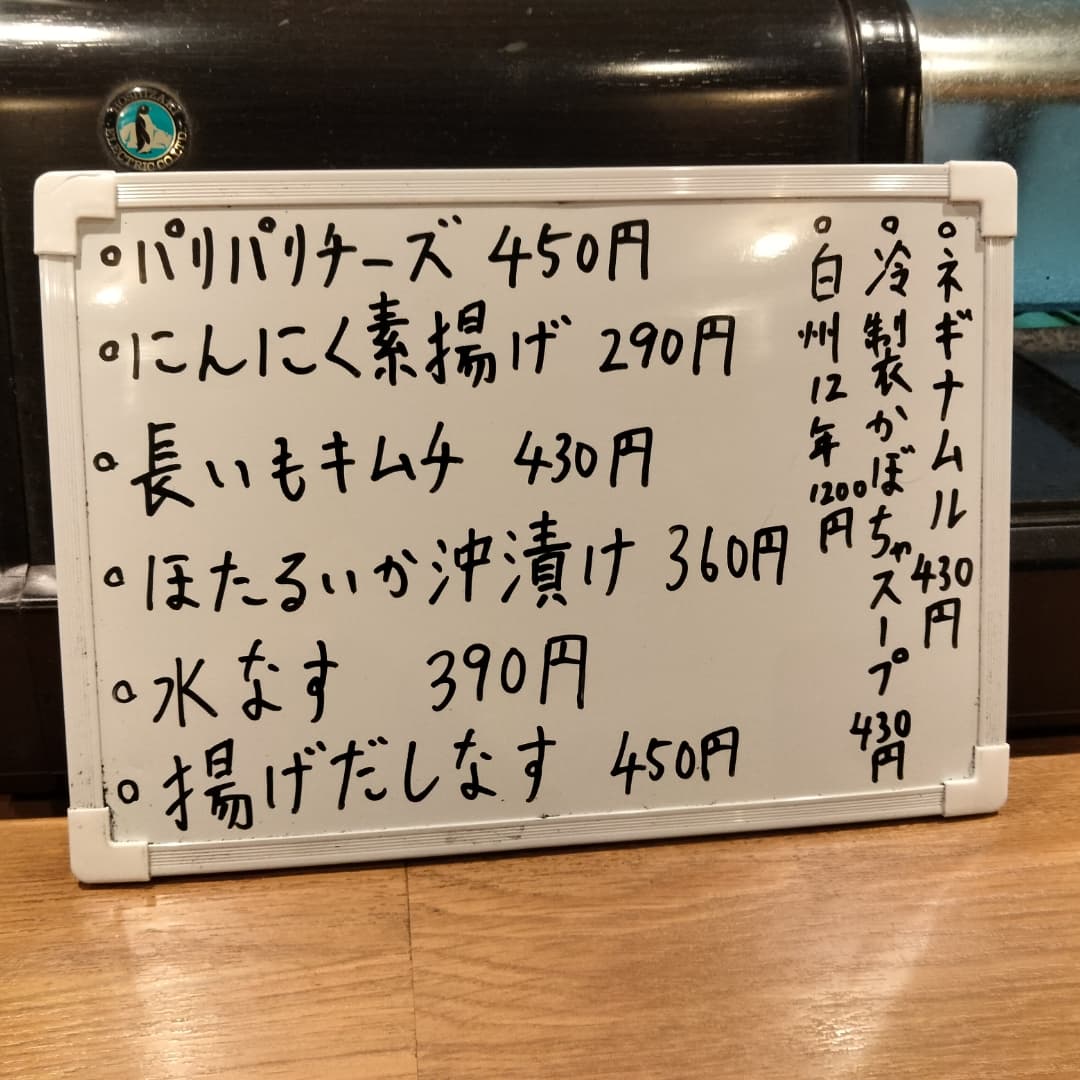 HOSHIZAKI
ELECTRIC CO., LTD.
。パリパリチーズ 450円
。にんにく素揚げ 290円
。長いもキムチ 430円
。ほたるいか沖漬け 360円
。水なす 390円
。揚げだしなす 450円
。ネギナムル 430円
。冷製かぼちゃスープ 430円
。白州12年 1200円